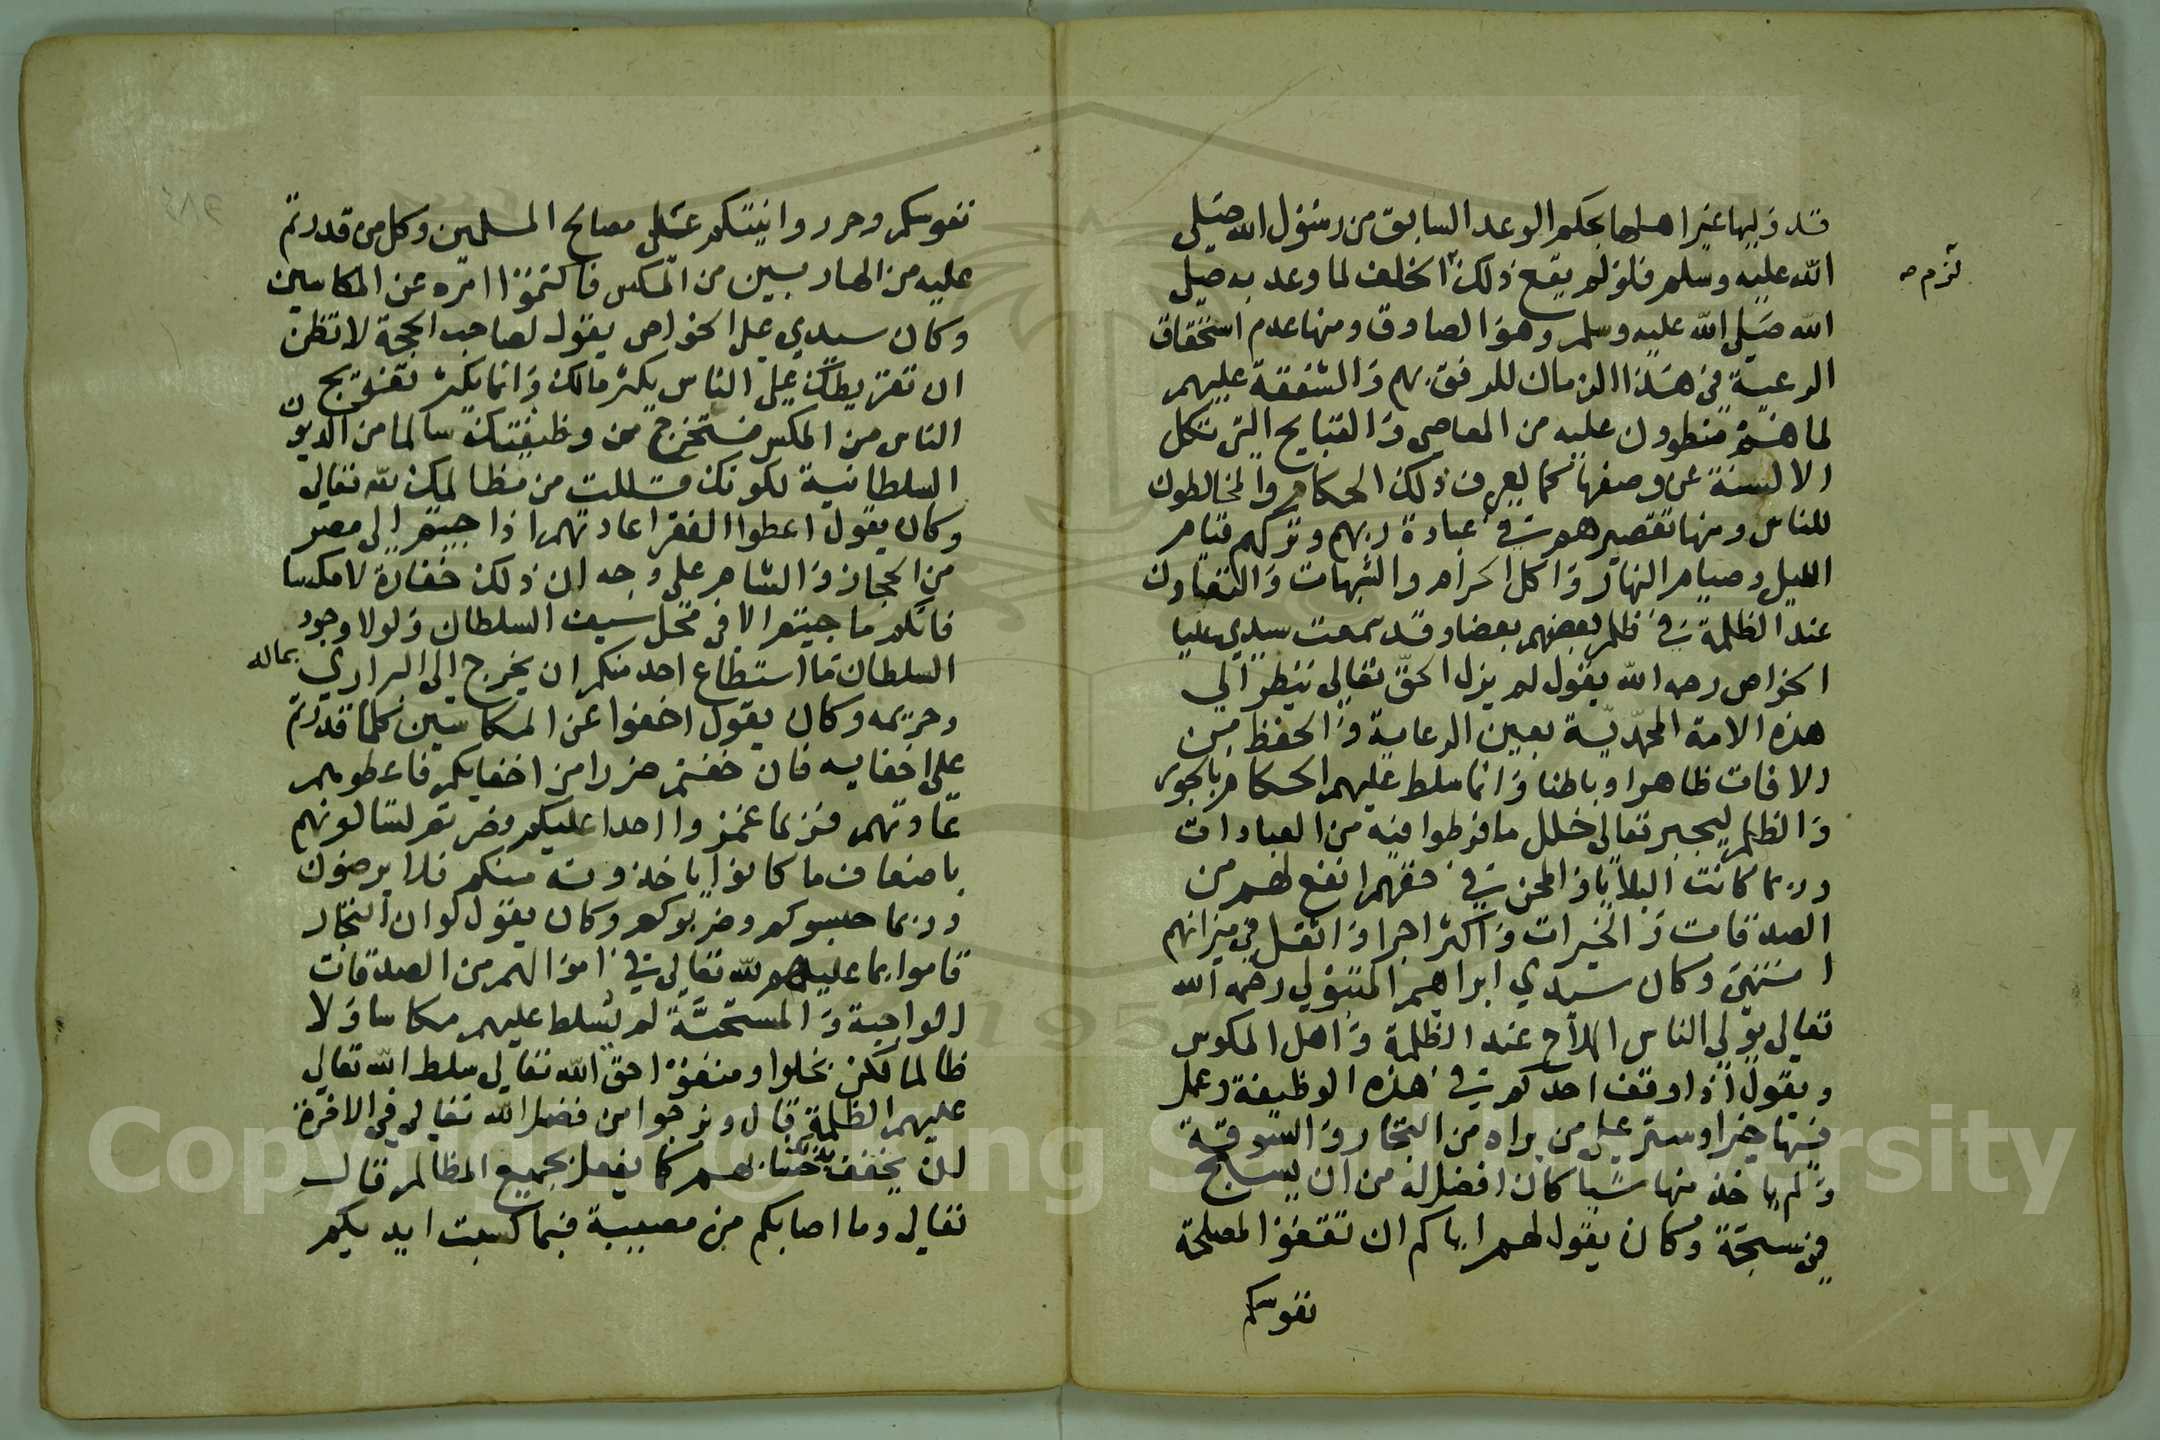 قد وليها غير اهلها بحكم الوعد السابق من رسول الله صلي
الله عليه وسلم فلو لم يقع ذلك الخلف لما وعد به صلي
لزم صه
الله صلي الله عليه وسلم وهو الصادق ومنها عدم استحقاق
الرعية في هذا الزمان للرفق بهم والشفقة عليهم
لما هم منطوون عليه من المعاصي والقبايح التي تكل
الالسنة عن وصفها كما يعرف ذلك الحكام والمخالطون
للناس ومنها تقصيرهم في عبادة ربهم وتركهم قيام
الليل وصيام النهار واكل الحرام والشبهات والتعاون
عند الظلمة في ظلم بعضهم بعضا وقد سمعت سيدي عليا
الخواص رحمه الله يقول لم يزل الحق تعالي ينظر الي
هذه الامة المحمدية بعين الرعاية والحفظ من
الافات ظاهرا وباطنا وانما سلط عليهم الحكام بالجور
والظلم ليجبر تعالي خلل ما فرطوا فيه من العبادات
وربما كانت البلايا والمحن في حقهم انفع لهم من
الصدقات والخيرات واكثر اجرا واثقل في ميزانهم
انتهي وكان سيدي ابراهيم المتبولي رحمه الله
تعالي يولي الناس الملاح عند الظلمة واهل المكوس
ويقول اذا وقف احدكم في هذه الوظيفة وعمل
فيها خيرا وستر علي من يراه من التجار والسوقة
ولم ياخذ منها شيا كان افضل له من ان يسبح
في سبحة وكان يقول لهم اياكم ان تقفوا لمصلحة
نفوسكم
نفوسكم وحرروا نيتكم علي مصالح المسلمين وكل من قدرتم
عليه من الهاربين من المكس فاكتموا امره عن المكاسين
وكان سيدي علي الخواص يقول لصاحب الحجة لا تظن
ان تفريطك علي الناس يكثر مالك وانما يكثر بقنوتيج
الناس من المكس فتخرج من وظيفتك سالما من الديون
السلطانية لكونك قللت من مظالمك لله تعالي
وكان يقول اعطوا الفقرا عادتهم اذا جيتم الي مصر
من الحجاز والشام علي وجه ان ذلك خفارة لا مكسا
فانكم ما جيتم الا في محل سيف السلطان ولولا وجود
السلطان ما استطاع احد منكم ان يخرج الي البراري بماله
وحريمه وكان يقول اخفوا عن المكاسين كلما قدرتم
علي اخفايه فان خفتم ضررا من اخفايكم فاعطوهم
عادتهم فربما غمزوا احدا عليكم وضر ثم لتسالونهم
باضعاف ما كانوا ياخذونه منكم فلا يرضون
وربما حبسوكم وضربوكم وكان يقول لو ان التجار
قاموا بما عليهم لله تعالي في اموالهم من الصدقات
الواجبة والمستحبة لم يسلط عليهم مكاسا ولا
ظالما لكن بخلوا ومنعوا حق الله تعالي سلط الله تعالي
عليهم الظلمة قال ونرجوا من فضل الله تعالي في الاخرة
ان يخفف بذلك حسابهم كما يفعل بجميع المظالم قال
تعالي وما اصابكم من مصيبة فبما كسبت ايديكم
Copyright © King Saud University
1957